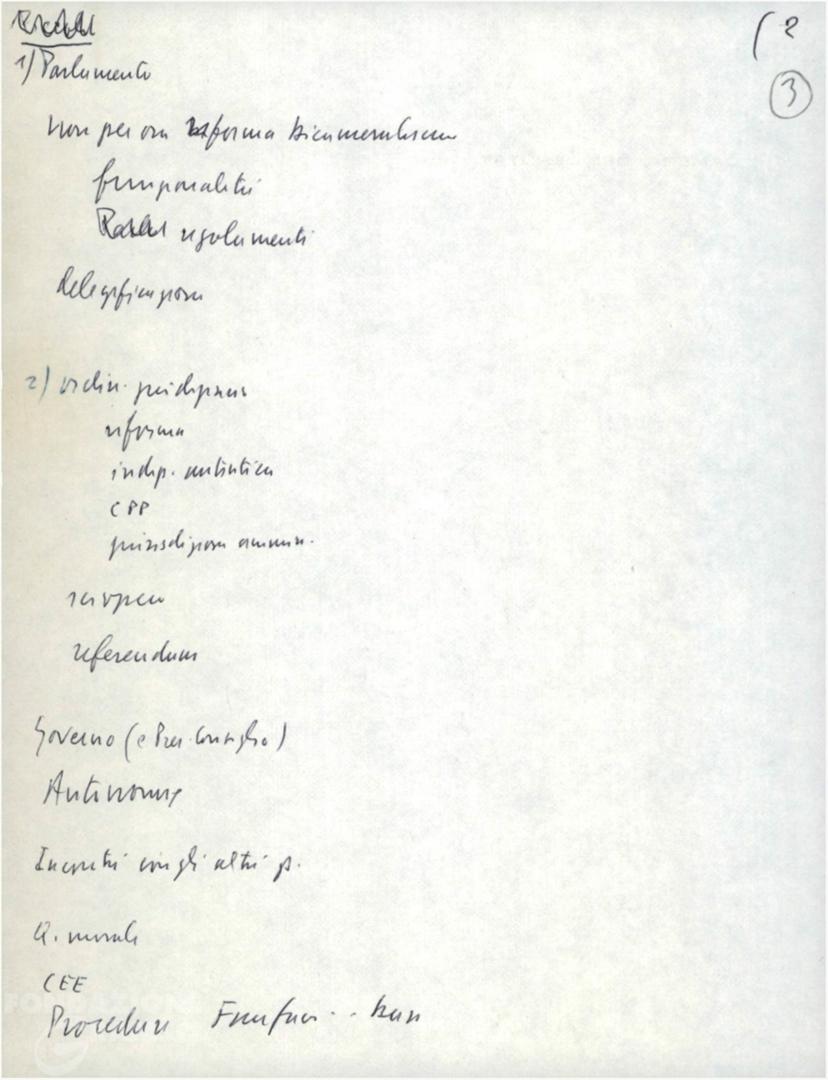 ( 2
3
1) Parlamento
Non per ora riforma bicameralismo
funzionalità
regolamenti
delegificazione
2) ordin. giudiziario
riforma
indip. autentica
CPP
giurisdizione ammin.
sciopero
referendum
Governo (e Pres. Consiglio)
Autonomie
Incontri con gli altri p.
Q. morale
CEE
Procedure